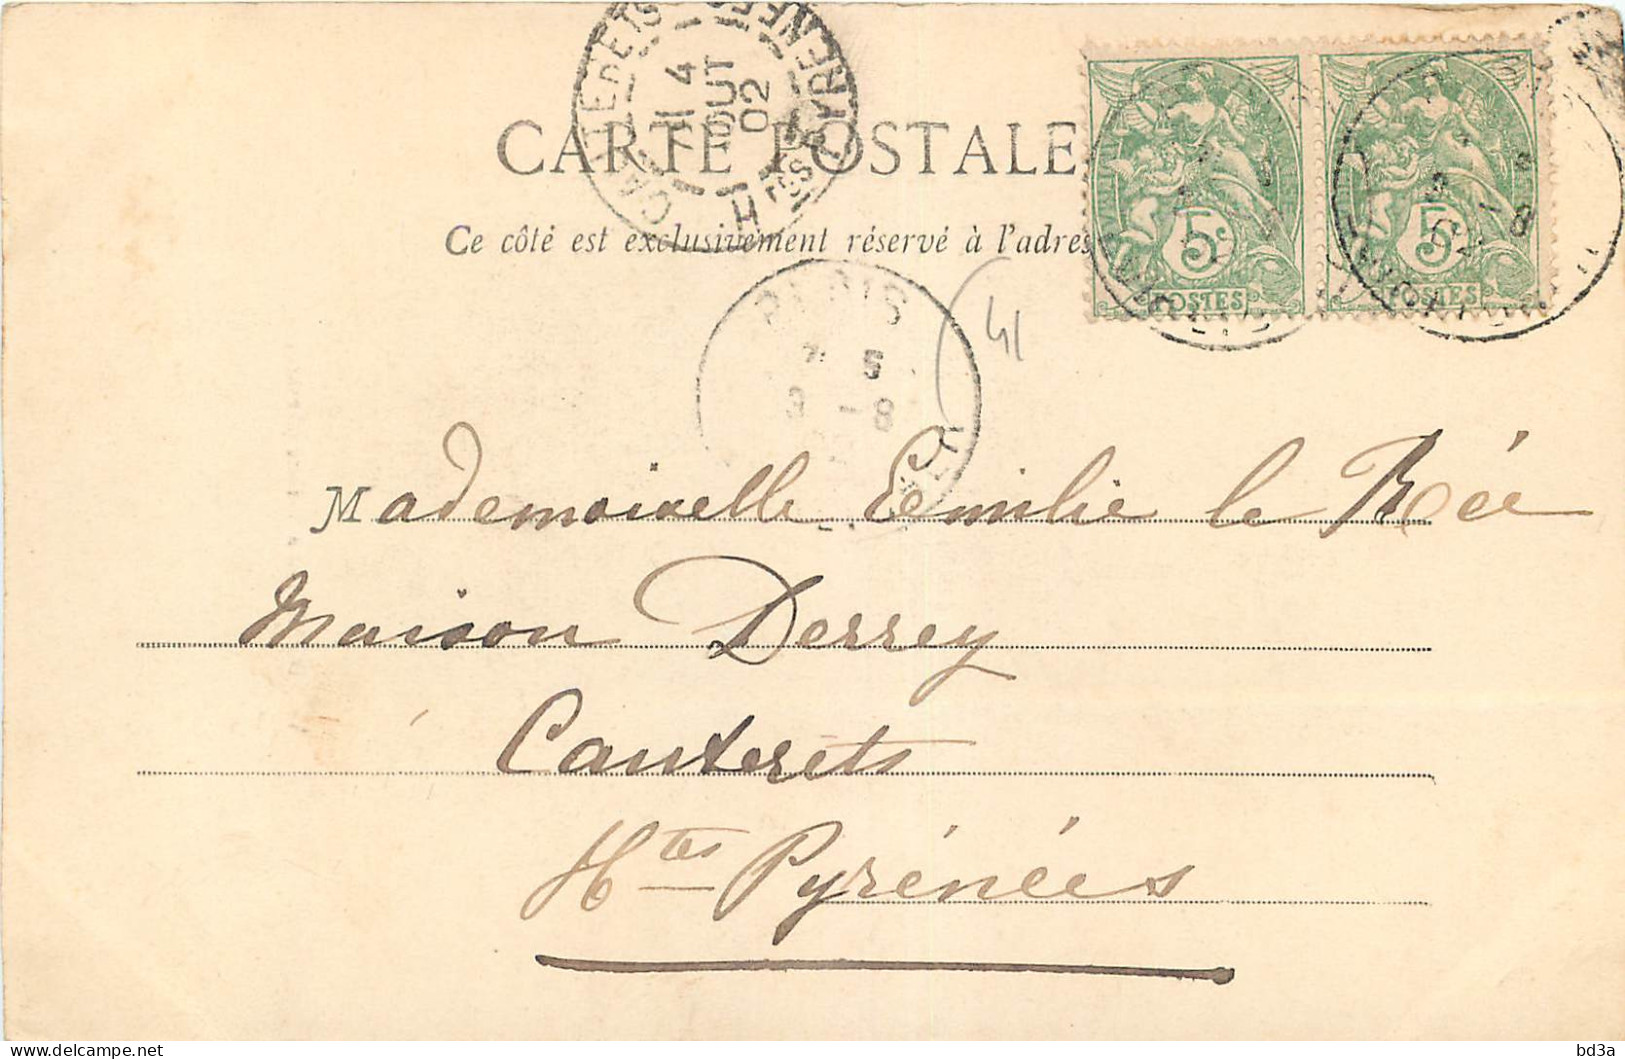 CAUTERETS
HTES PYRENEES
11
4
AOUT
02
CARTE POSTALE
Ce côté est exclusivement réservé à l'adres
5c 5c
POSTES POSTES
PARIS
7 5
3 -8
41
Mademoiselle Emilie le Rée
Maison Derrey
Cauterets
Htes Pyrénées
bd3a